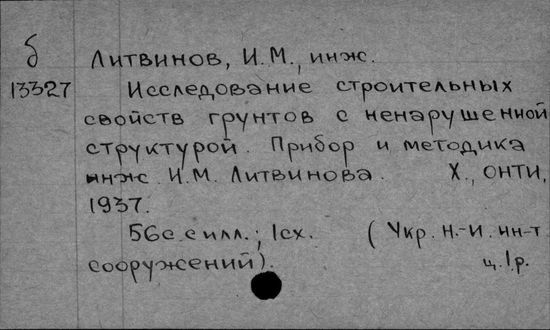 б Литвинов, И.М., инж.
13327 Исследование строительных
свойств грунтов с ненарушенной
структурой. Прибор и методика
инж. И.М. Литвинова. Х., ОНТИ,
1937.
56с. с илл.; 1сх. (Укр. н.-и. ин-т
сооружений).
ц. 1р.